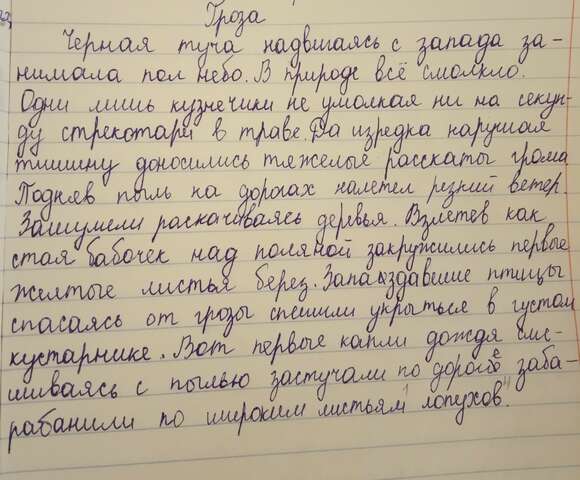 Гроза
Черная туча надвигаясь с запада за-
нимала пол небо. В природе всё смолкло.
Одни лишь кузнечики не умолкая ни на секун-
ду стрекотари в траве. Да изредка нарушая
тишину доносились тяжелые расскаты грома
Подняв пыль на дорогах налетел резкий ветер.
Зашумели раскачиваясь деревья. Взлетев как
стая бабочек над поляной закружились первые
желтые листья берез. Запаыздавшие птицы
спасаясь от грозы спешили укрыться в густом
кустарнике. Вот первые капли дождя сме-
шиваясь с пылью застучали по дороге заба-
рабанили по широким листьям лопухов.